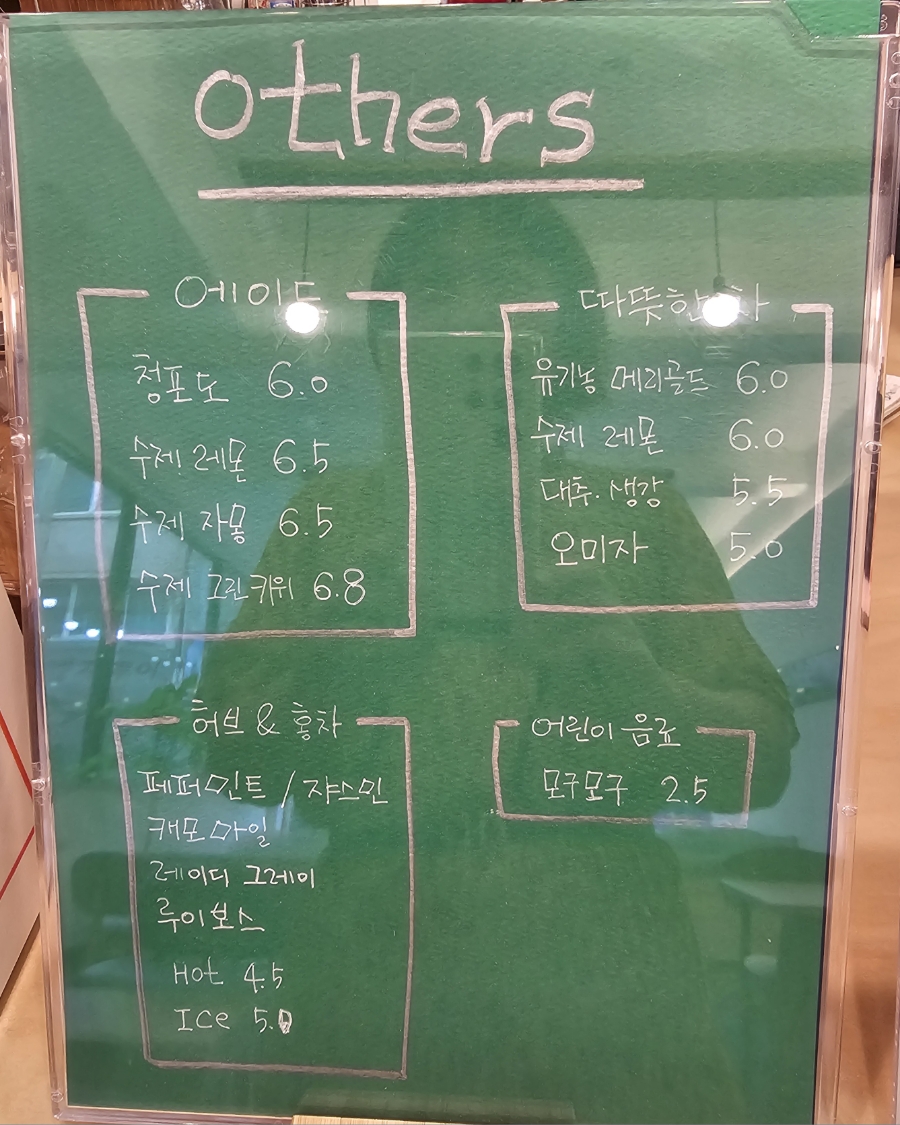 others
에이드
청포도 6.0
수제 레몬 6.5
수제 자몽 6.5
수제 그린키위 6.8
따뜻한 차
유기농 메리골드 6.0
수제 레몬 6.0
대추·생강 5.5
오미자 5.0
허브 & 홍차
페퍼민트 / 쟈스민
캐모마일
레이디 그레이
루이보스
Hot 4.5
Ice 5.0
어린이 음료
모구모구 2.5